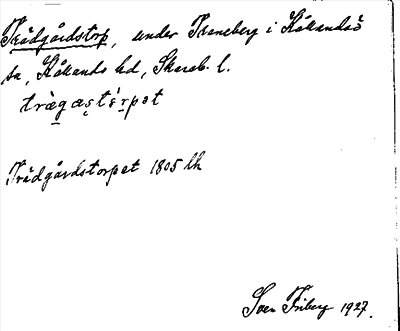 Trädgårdstorp, under Traneberg i Kållandsö
sn, Kållands hd, Skarab. l.
trä̀gas̜tɛ́r̲pət
Trädgårdstorpet 1805 lh
Sven Friberg 1927.